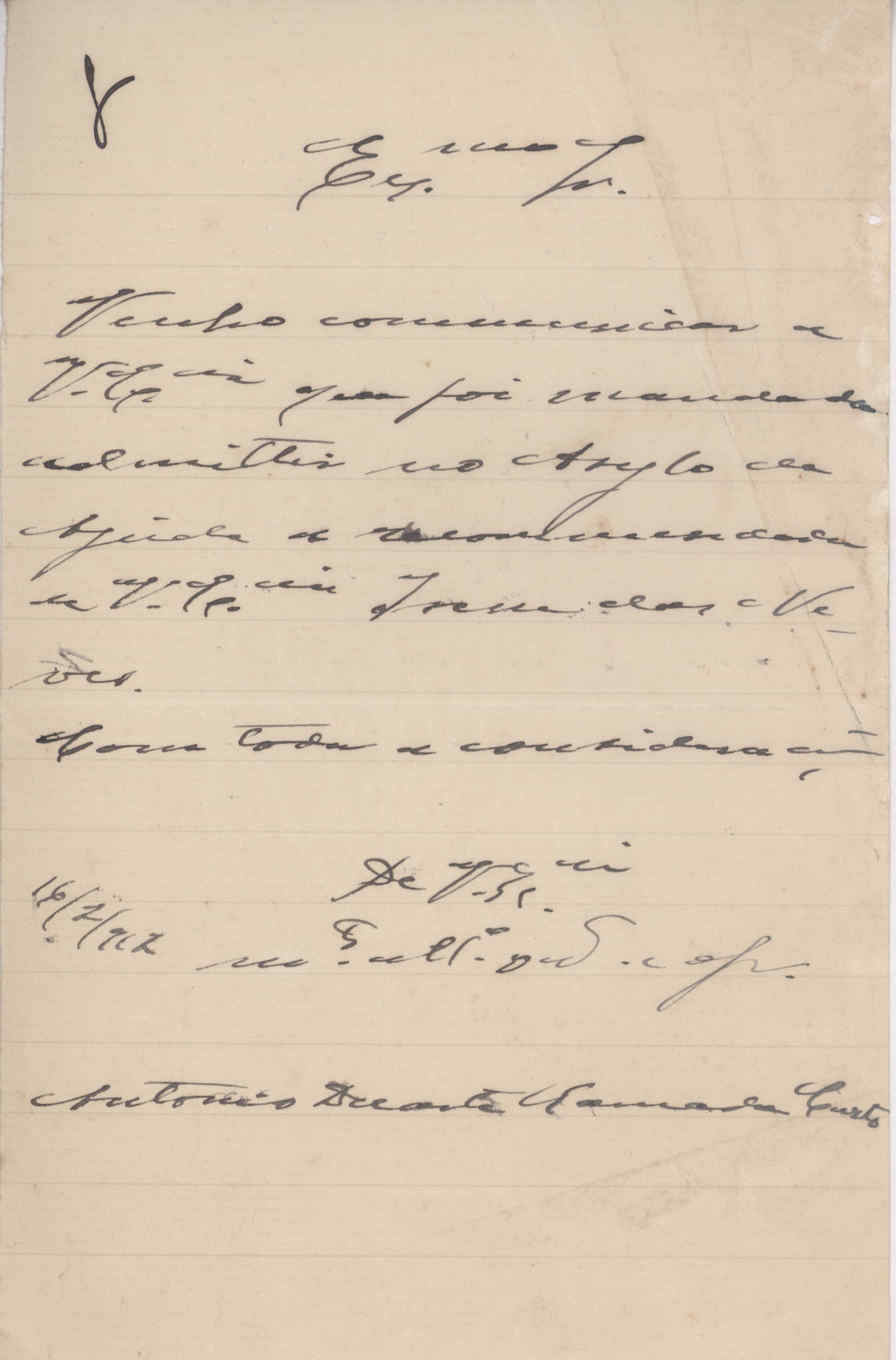 Ex.mo Sr.
Venho communicar a
V. Ex.cia que foi mandada
admittir no Asylo da
Ajuda a recommendada
de V. Ex.cia Irene das Ne-
ves.
Com toda a consideração
De V. Ex.cia
16/2/912
m.to att.o ven.or e obr.
Antonio Duarte Ramada Curto